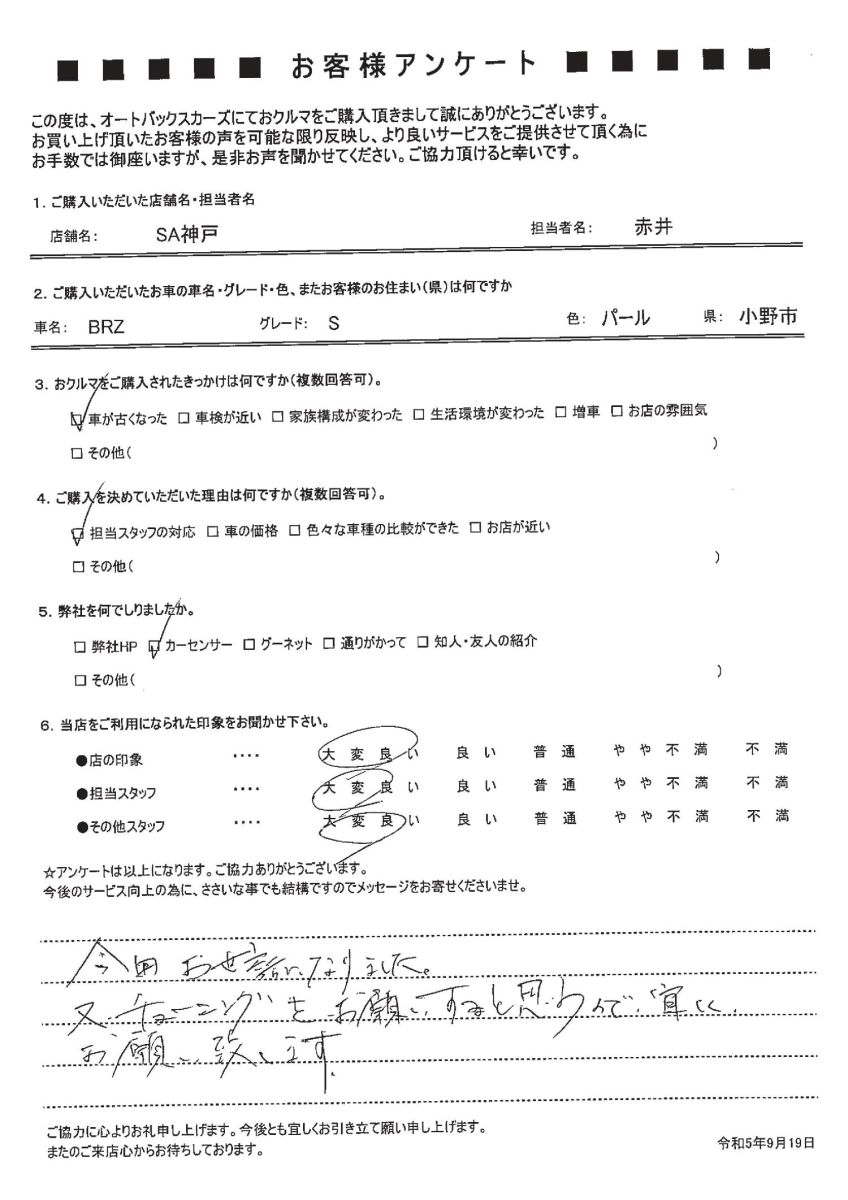 ■ ■ ■ ■ ■ お客様アンケート ■ ■ ■ ■ ■
この度は、オートバックスカーズにておクルマをご購入頂きまして誠にありがとうございます。
お買い上げ頂いたお客様の声を可能な限り反映し、より良いサービスをご提供させて頂く為に
お手数では御座いますが、是非お声を聞かせてください。ご協力頂けると幸いです。
1. ご購入いただいた店舗名・担当者名
店舗名: SA神戸 担当者名: 赤井
2. ご購入いただいたお車の車名・グレード・色、またお客様のお住まい(県)は何ですか
車名: BRZ グレード: S 色: パール 県: 小野市
3. おクルマをご購入されたきっかけは何ですか(複数回答可)。
☑ 車が古くなった □ 車検が近い □ 家族構成が変わった □ 生活環境が変わった □ 増車 □ お店の雰囲気
□ その他( )
4. ご購入を決めていただいた理由は何ですか(複数回答可)。
☑ 担当スタッフの対応 □ 車の価格 □ 色々な車種の比較ができた □ お店が近い
□ その他( )
5. 弊社を何でしりましたか。
□ 弊社HP ☑ カーセンサー □ グーネット □ 通りがかって □ 知人・友人の紹介
□ その他( )
6. 当店をご利用になられた印象をお聞かせ下さい。
●店の印象 ‥‥ 大変良い 良い 普通 やや不満 不満
●担当スタッフ ‥‥ 大変良い 良い 普通 やや不満 不満
●その他スタッフ ‥‥ 大変良い 良い 普通 やや不満 不満
☆アンケートは以上になります。ご協力ありがとうございます。
今後のサービス向上の為に、ささいな事でも結構ですのでメッセージをお寄せくださいませ。
今回お世話になりました。
又、チューニングをお願いすると思うので、宜しく
お願い致します。
ご協力に心よりお礼申し上げます。今後とも宜しくお引き立て願い申し上げます。
またのご来店心からお待ちしております。
令和5年9月19日